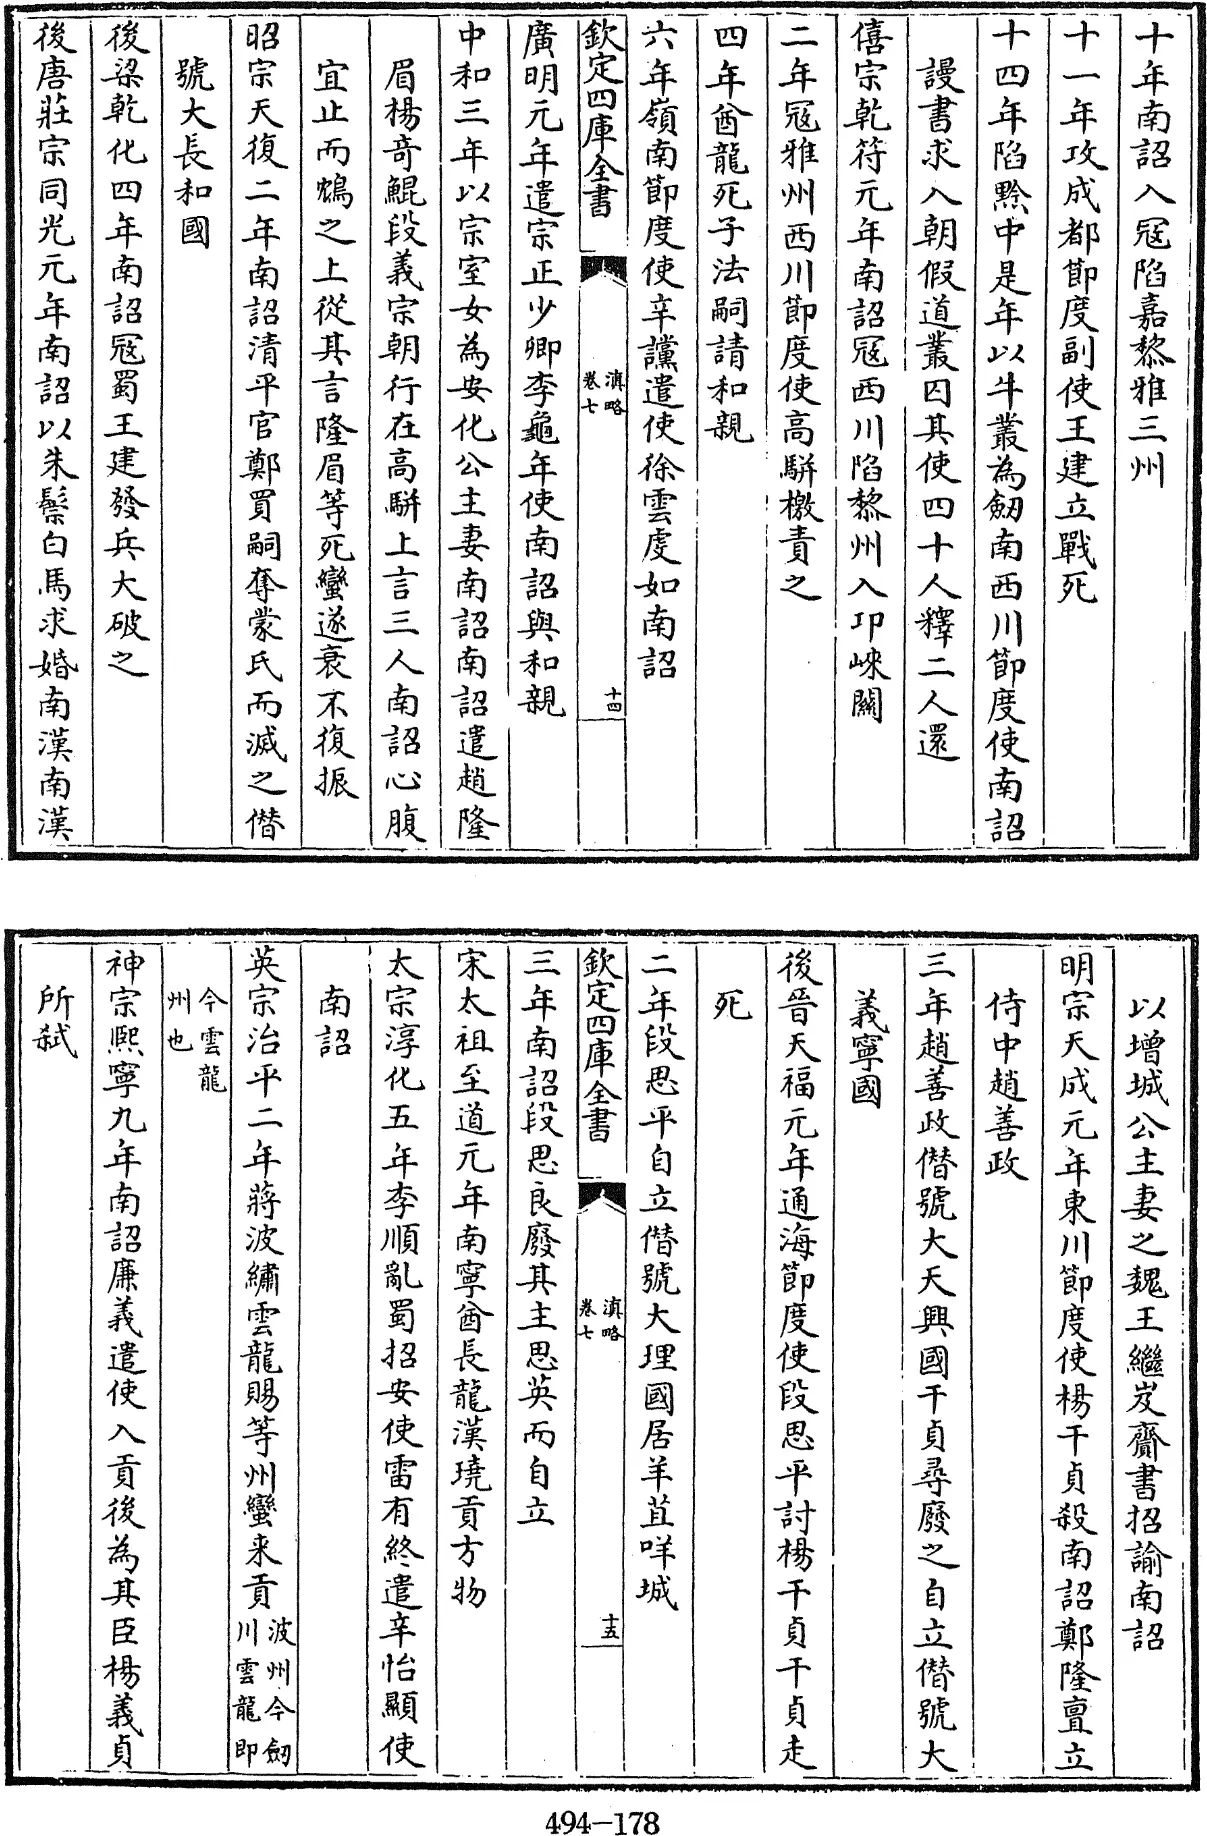 十年南詔入冦陷嘉黎雅三州
十一年攻成都節度副使王建立戰死
十四年陷黔中是年以牛叢為劒南西川節度使南詔
謾書求入朝假道叢囚其使四十人釋二人還
僖宗乾符元年南詔冦西川陷黎州入邛崍關
二年冦雅州西川節度使高駢檄責之
四年酋龍死子法嗣請和親
六年嶺南節度使辛讜遣使徐雲虔如南詔
欽定四庫全書
滇略
卷七
十四
廣明元年遣宗正少卿李龜年使南詔與和親
中和三年以宗室女為安化公主妻南詔南詔遣趙隆
眉楊奇鯤段義宗朝行在高駢上言三人南詔心腹
宜止而鴆之上從其言隆眉等死蠻遂衰不復振
昭宗天復二年南詔清平官鄭買嗣奪蒙氏而滅之僣
號大長和國
後梁乾化四年南詔冦蜀王建發兵大破之
後唐莊宗同光元年南詔以朱鬃白馬求婚南漢南漢
以增城公主妻之魏王繼岌齎書招諭南詔
明宗天成元年東川節度使楊干貞殺南詔鄭隆亶立
侍中趙善政
三年趙善政僣號大天興國干貞尋廢之自立僣號大
義寧國
後晉天福元年通海節度使段思平討楊干貞干貞走
死
二年段思平自立僣號大理國居羊苴咩城
欽定四庫全書
滇略
卷七
十五
三年南詔段思良廢其主思英而自立
宋太祖至道元年南寧酋長龍漢𤩊貢方物
太宗淳化五年李順亂蜀招安使雷有終遣辛怡顯使
南詔
英宗治平二年蔣波繡雲龍賜等州蠻来貢波州今劒
川雲龍即
今雲龍
州也
神宗熙寧九年南詔廉義遣使入貢後為其臣楊義貞
所弑
494-178